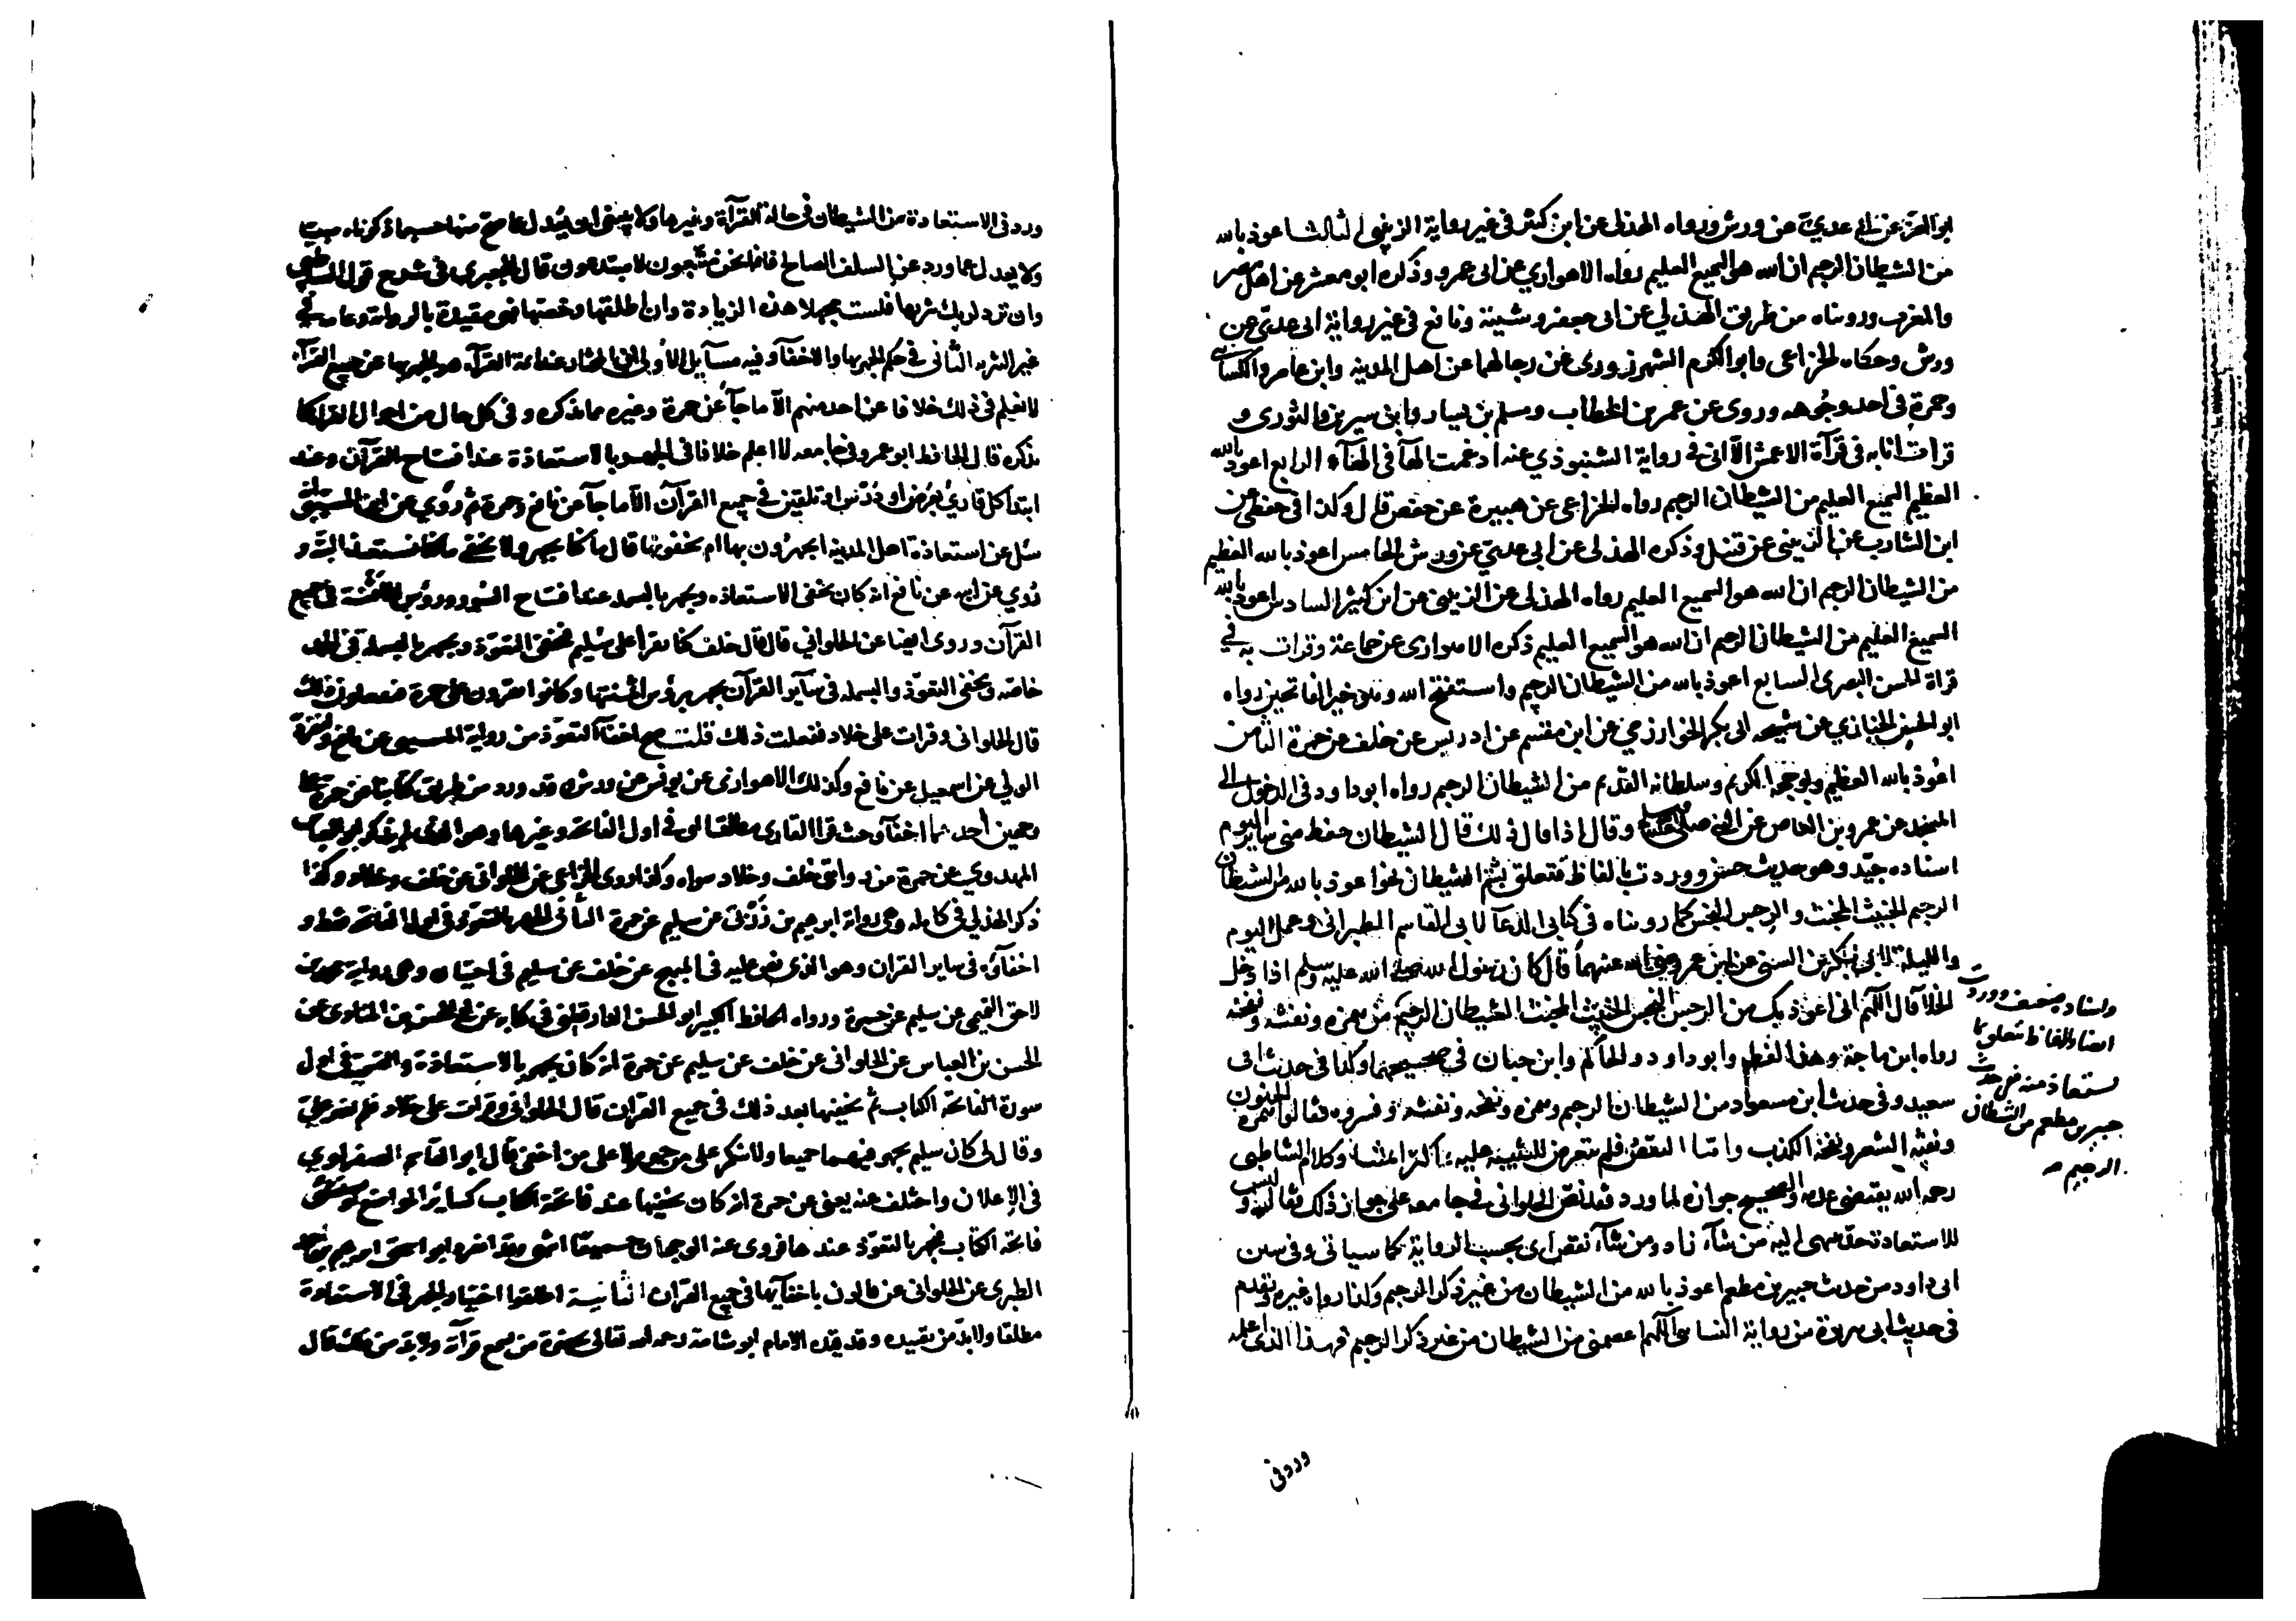 ابو العز عن ابي عدي عن ورش ورواه الهذلي عن ابن كثير في غير رواية الزينبي الثالث اعوذ بالله
من الشيطان الرجيم ان الله هو السميع العليم رواه الاهوازي عن ابي عمرو وذكره ابو معشر عن اهل مصر
والمغرب ورويناه من طريق الهذلي عن ابي جعفر وشيبة ونافع في غير رواية ابي عدي عن
ورش وحكاه الخزاعي وابو الكرم الشهرزوري عن رجالهما عن اهل المدينة وابن عامر والكسائي
وحمزة في احد وجوهه وروي عن عمر بن الخطاب ومسلم بن يسار وابن سيرين والثوري و
قرات انا به في قرآة الاعمش الا اني في رواية الشنبوذي عنه ادغمت الهآ في الهآء الرابع اعوذ بالله
العظيم السميع العليم من الشيطان الرجيم رواه الخزاعي عن هبيرة عن حفص قال وكذا في حفظي عن
ابن الشارب عن الزينبي عن قنبل وذكره الهذلي عن ابي عدي عن ورش الخامس اعوذ بالله العظيم
من الشيطان الرجيم ان الله هو السميع العليم رواه الهذلي عن الزينبي عن ابن كثير السادس اعوذ بالله
السميع العليم من الشيطان الرجيم ان الله هو السميع العليم ذكره الاهوازي عن جماعة وقرات به في
قراة الحسن البصري السابع اعوذ بالله من الشيطان الرجيم واستفتح الله وهو خير الفاتحين رواه
ابو الحسين الخبازي عن شيخه ابي بكر الخوارزمي عن ابن مقسم عن ادريس عن خلف عن حمزة الثامن
اعوذ بالله العظيم وبوجهه الكريم وسلطانه القديم من الشيطان الرجيم رواه ابو داود في الدخول الى
المسجد عن عمرو بن العاص عن النبي صلى الله عليه وسلم وقال اذا قال ذلك قال الشيطان حفظ مني ساير اليوم
اسناده جيد وهو حديث حسن ووردت بالفاظ تتعلق بشتم الشيطان نحو اعوذ بالله من الشيطان
الرجيم الخبيث المخبث والرجس النجس كما رويناه في كتابي الدعآ لابي القاسم الطبراني وعمل اليوم
والليلة لابي بكر بن السني عن ابن عمر رضي الله عنهما قال كان رسول الله صلى الله عليه وسلم اذا دخل
الخلآ قال اللهم اني اعوذ بك من الرجس النجس الخبيث المخبث الشيطان الرجيم من همزه ونفثه ونفخه
رواه ابن ماجة وهذا لفظه وابو داود والحاكم وابن حبان في صحيحيهما وكذا في حديث ابي
سعيد وفي حديث ابن مسعود من الشيطان الرجيم وهمزه ونفخه ونفثه وفسروه فقالوا همزه الجنون
ونفثه الشعر ونفخه الكبر واما النقص فلم يتعرض للتنبيه عليه اكثر ائمتنا وكلام الشاطبي
رحمه الله يقتضي عدمه والصحيح جوازه لما ورد فقد نص الحلواني في جامعه على جواز ذلك فقال وليس
للاستعاذة حد ينتهى اليه من شآء زاد ومن شآء نقص اي بحسب الرواية كما سياتي وفي سنن
ابي داود من حديث جبير بن مطعم اعوذ بالله من الشيطان من غير ذكر الرجيم وكذا رواه غيره وتقدم
في حديث ابي هريرة من رواية النسائي اللهم اعصمني من الشيطان من غير ذكر الرجيم فهذا الذي اعلمه
واسناده ضعيف ووردت
ايضا بالفاظ تتعلق بما
يستعاذ منه ففي حديث
جبير بن مطعم من الشيطان
الرجيم
ورد في
ورد في الاستعاذة من الشيطان في حالة القرآة وغيرها ولا ينبغي ان يعدل عما صح منها حسبما ذكرناه مبينا
ولا يعدل عما ورد عن السلف الصالح فانما نحن متبعون لا مبتدعون قال الجعبري في شرح قول الشاطبي
وان تزد لربك تنزيها فلست مجهلا هذه الزيادة وان اطلقها وخصها فهي مقيدة بالرواية وعامة في
غير التنزيه الثاني في حكم الجهر بها والاخفآ وفيه مسآيل الاولى ان المختار عند ائمة القرآة هو الجهر بها عن جميع القرآء
لا نعلم في ذلك خلافا عن احد منهم الا ما جآ عن حمزة وغيره مما نذكره وفي كل حال من احوال القراة كما
نذكره قال الحافظ ابو عمرو في جامعه لا اعلم خلافا في الجهر بالاستعاذة عند افتتاح القرآن وعند
ابتدآ كل قارئ بعرض او درس او تلقين في جميع القرآن الا ما جآ عن نافع وحمزة ثم روي عن ابن المسيبي انه
سئل عن استعاذة اهل المدينة ايجهرون بها ام يخفونها قال ما كنا نجهر ولا نخفي ما كنا نستعيذ البتة و
روي عن ابيه عن نافع انه كان يخفي الاستعاذة ويجهر بالبسملة عند افتتاح السور ورؤس الآي في جميع
القرآن وروى ايضا عن الحلواني قال قال خلف كنا نقرا على سليم فنخفي التعوذ ونجهر بالبسملة في الحمد
خاصة ونخفي التعوذ والبسملة في سآير القرآن نجهر برؤس اثمنتها وكانوا يقرون على حمزة فيفعلون ذلك
قال الحلواني وقرات على خلاد ففعلت ذلك قلت صح اخفآ التعوذ من رواية المسيبي عن نافع وانفرد به
الولي عن اسمعيل عن نافع وكذلك الاهوازي عن يونس عن ورش وقد ورد من طرق كتابنا عن حمزة على
وجهين احدهما اخفآؤه حيث قرا القاري مطلقا اي في اول الفاتحة وغيرها وهو الذي لم يذكر ابو العباس
المهدوي عن حمزة من روايتي خلف وخلاد سواه وكذا روى الخزاعي عن الحلواني عن خلف وخلاد وكذا
ذكر الهذلي في كامله وهي رواية ابرهيم بن زربي عن سليم عن حمزة الثاني الجهر بالتعوذ في اول الفاتحة فقط و
اخفآؤه في ساير القران وهو الذي نص عليه في المبهج عن خلف عن سليم في اختياره وهي رواية محمد بن
لاحق التميمي عن سليم عن حمزة ورواه الحافظ الكبير ابو الحسن الدارقطني في كتابه عن ابي الحسن بن المنادي عن
الحسن بن العباس عن الحلواني عن خلف عن سليم عن حمزة انه كان يجهر بالاستعاذة والتسمية في اول
سورة الفاتحة الكتاب ثم يخفيها بعد ذلك في جميع القران قال الحلواني وقرات على خلاد فلم يغير علي
وقال لي كان سليم يجهر فيهما جميعا ولا ينكر على من جهر ولا على من اخفى قال ابو القاسم الصفراوي
في الاعلان واختلف عنه يعني عن حمزة انه كان يخفيها عند فاتحة الكتاب كساير المواضع او يستثني
فاتحة الكتاب فيجهر بالتعوذ عندها فروي عنه الوجهان جميعا انتهى وقد انفرد ابو اسحق ابرهيم بن احمد
الطبري عن الحلواني عن قالون باخفآيها في جميع القران الثانية اطلقوا اختيار الجهر في الاستعاذة
مطلقا ولا بد من تقييده وقد قيده الامام ابو شامة رحمه الله تعالى بحضرة من يسمع قرآته ولا بد من ذلك قال